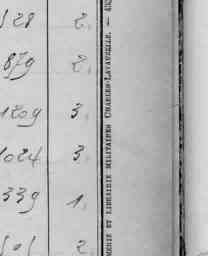 528 2.
879 2.
1209 3.
1024 3.
339 1.
2
MERIE ET LIBRAIRIE MILITAIRES CHARLES-LAVAUZELLE. —